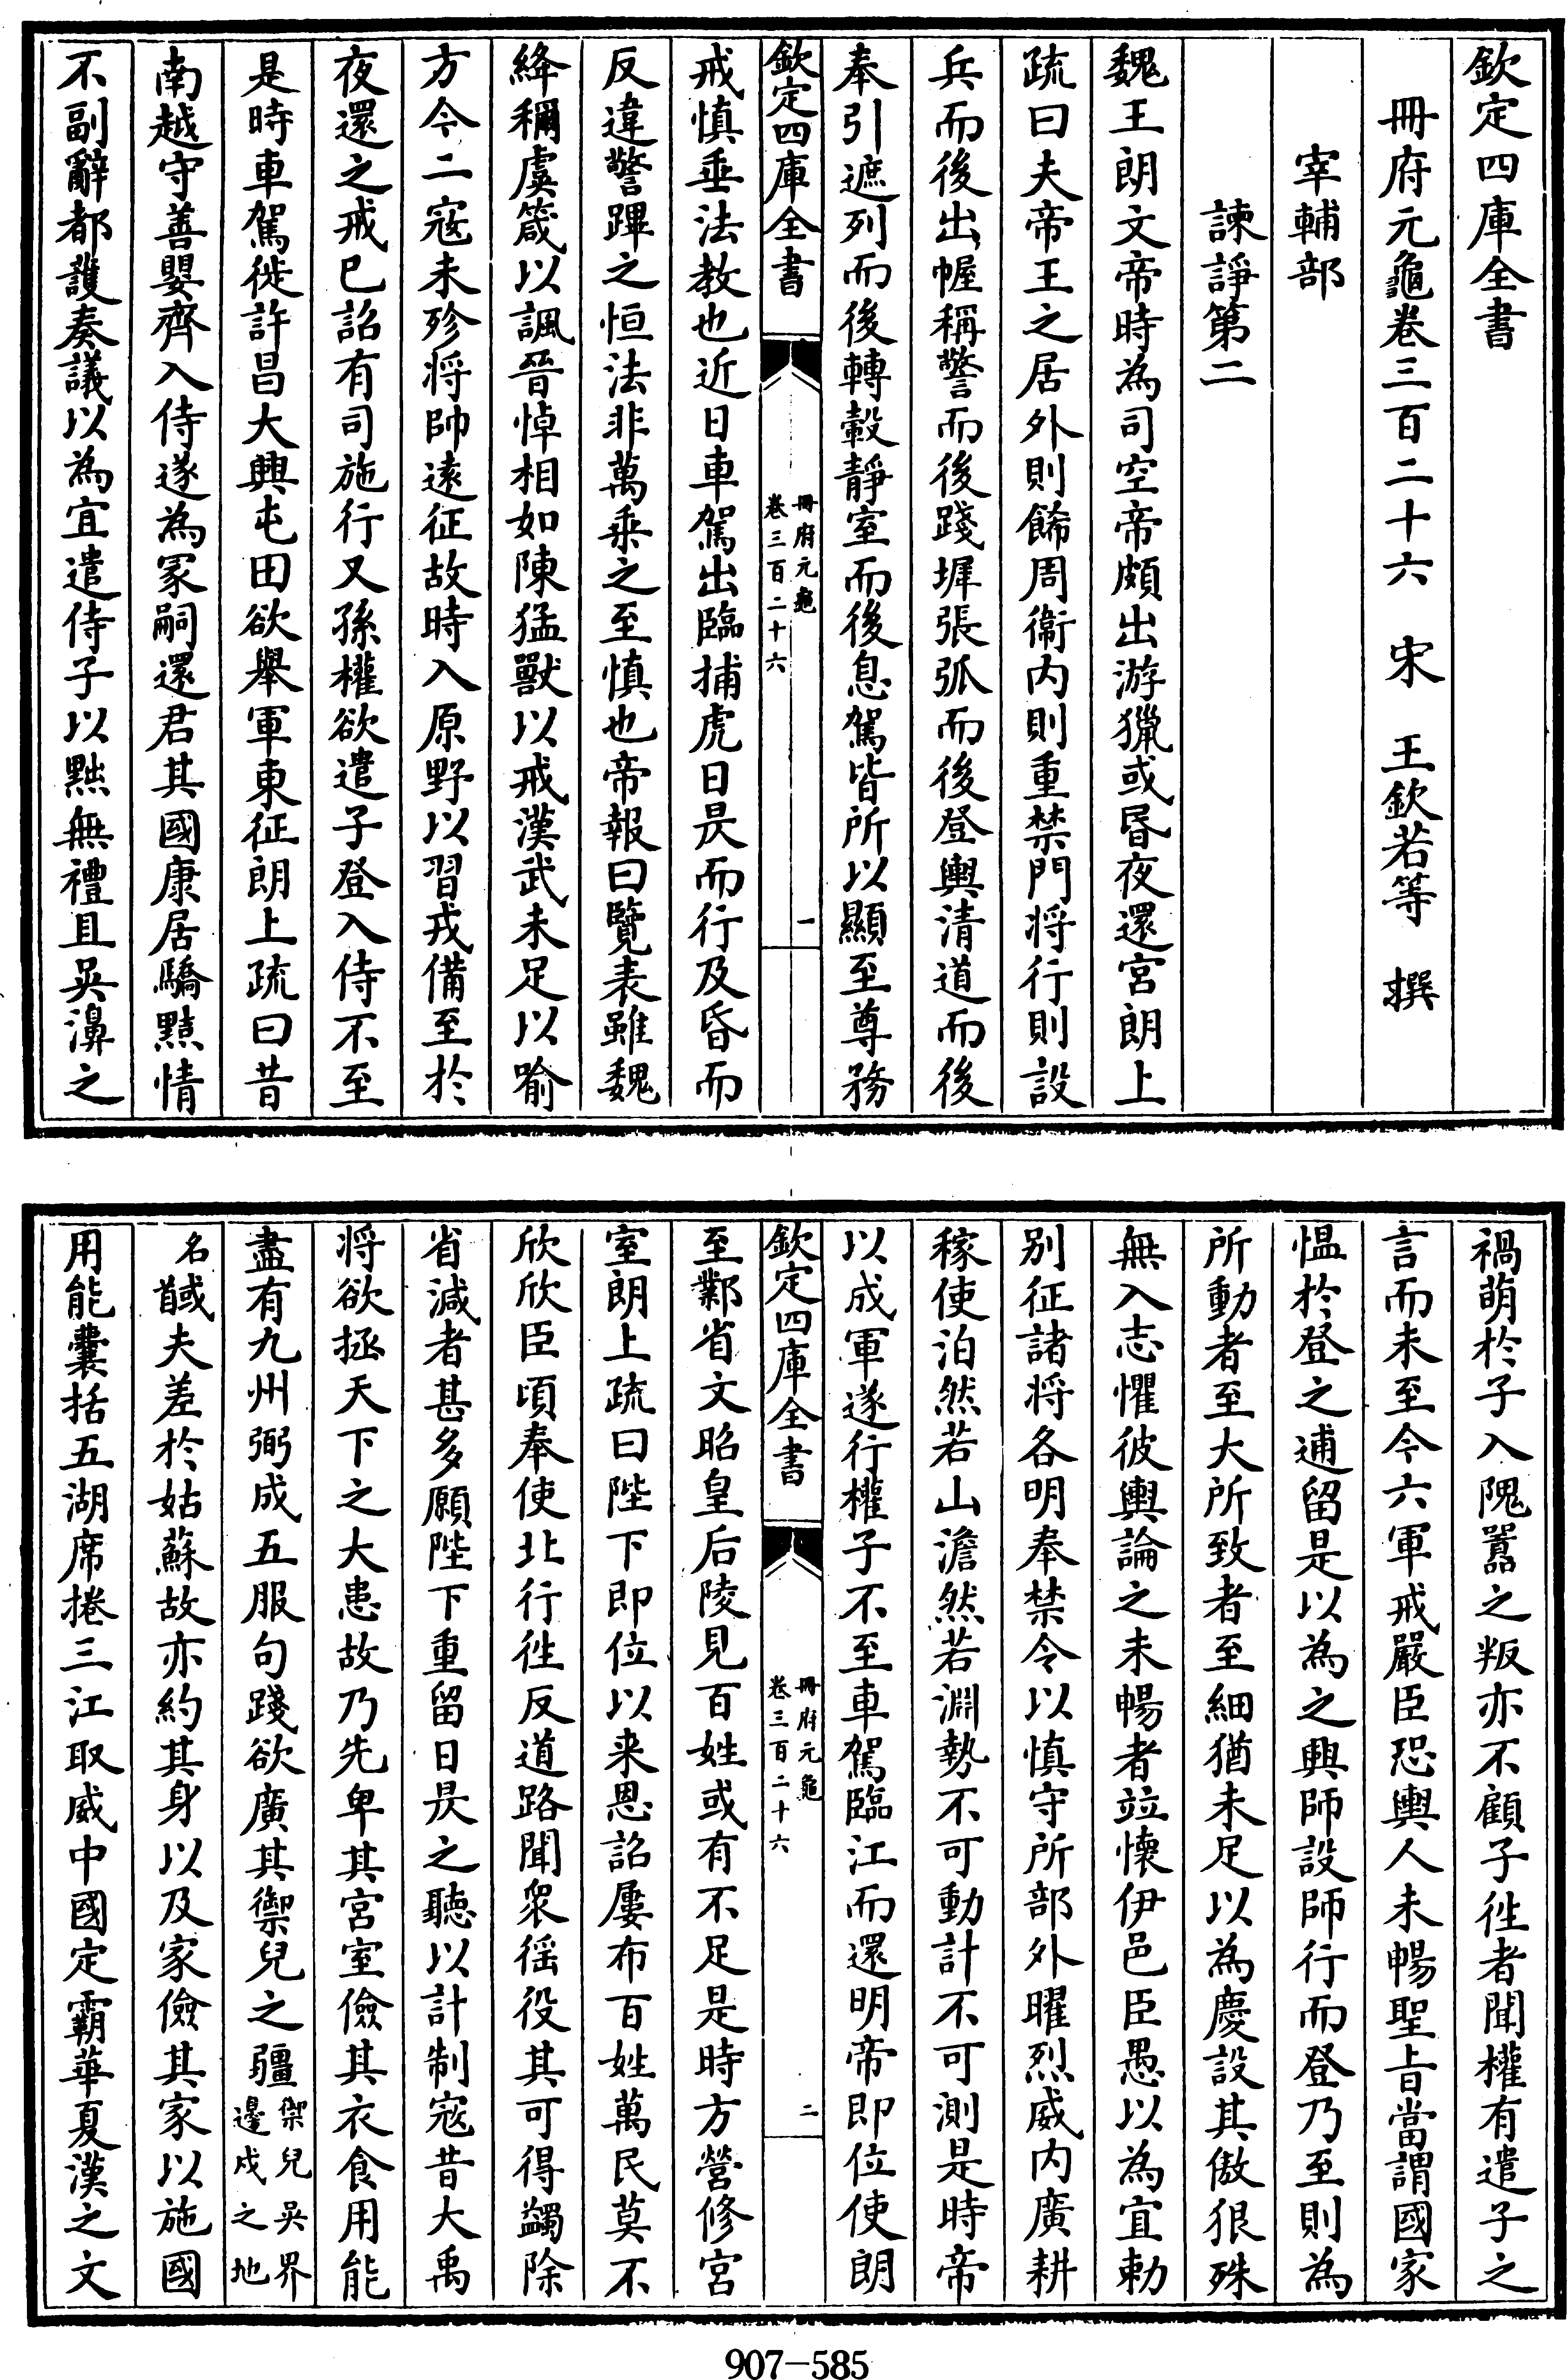 欽定四庫全書
冊府元龜卷三百二十六　宋　王欽若等　撰
宰輔部
諫諍第二
魏王朗文帝時為司空帝頗出游獵或昏夜還宮朗上
疏曰夫帝王之居外則飾周衞内則重禁門将行則設
兵而後出幄稱警而後踐墀張弧而後登輿清道而後
奉引遮列而後轉轂靜室而後息駕皆所以顯至尊務
欽定四庫全書
冊府元龜
卷三百二十六
一
戒慎垂法教也近日車駕出臨捕虎日昃而行及昏而
反違警蹕之恒法非萬乘之至慎也帝報曰覽表雖魏
絳稱虞箴以諷晉悼相如陳猛獸以戒漢武未足以喻
方今二寇未殄将帥遠征故時入原野以習戎備至於
夜還之戒已詔有司施行又孫權欲遣子登入侍不至
是時車駕徙許昌大興屯田欲舉軍東征朗上疏曰昔
南越守善嬰齊入侍遂為冢嗣還君其國康居驕黠情
不副辭都護奏議以為宜遣侍子以黜無禮且吳濞之
禍萌於子入隗囂之叛亦不顧子徃者聞權有遣子之
言而未至今六軍戒嚴臣恐輿人未暢聖旨當謂國家
愠於登之逋留是以為之興師設師行而登乃至則為
所動者至大所致者至細猶未足以為慶設其傲狠殊
無入志懼彼輿論之未暢者竝懷伊邑臣愚以為宜勅
别征諸将各明奉禁令以慎守所部外曜烈威内廣耕
稼使泊然若山澹然若淵勢不可動計不可測是時帝
以成軍遂行權子不至車駕臨江而還明帝即位使朗
欽定四庫全書
冊府元龜
卷三百二十六
二
至鄴省文昭皇后陵見百姓或有不足是時方營修宮
室朗上疏曰陛下即位以来恩詔屢布百姓萬民莫不
欣欣臣頃奉使北行徃反道路聞衆徭役其可得蠲除
省減者甚多願陛下重留日昃之聽以計制寇昔大禹
将欲拯天下之大患故乃先卑其宮室儉其衣食用能
盡有九州弼成五服句踐欲廣其禦兒之疆禦兒吳界邊戍之地
名馘夫差於姑蘇故亦約其身以及家儉其家以施國
用能囊括五湖席捲三江取威中國定霸華夏漢之文
907-585